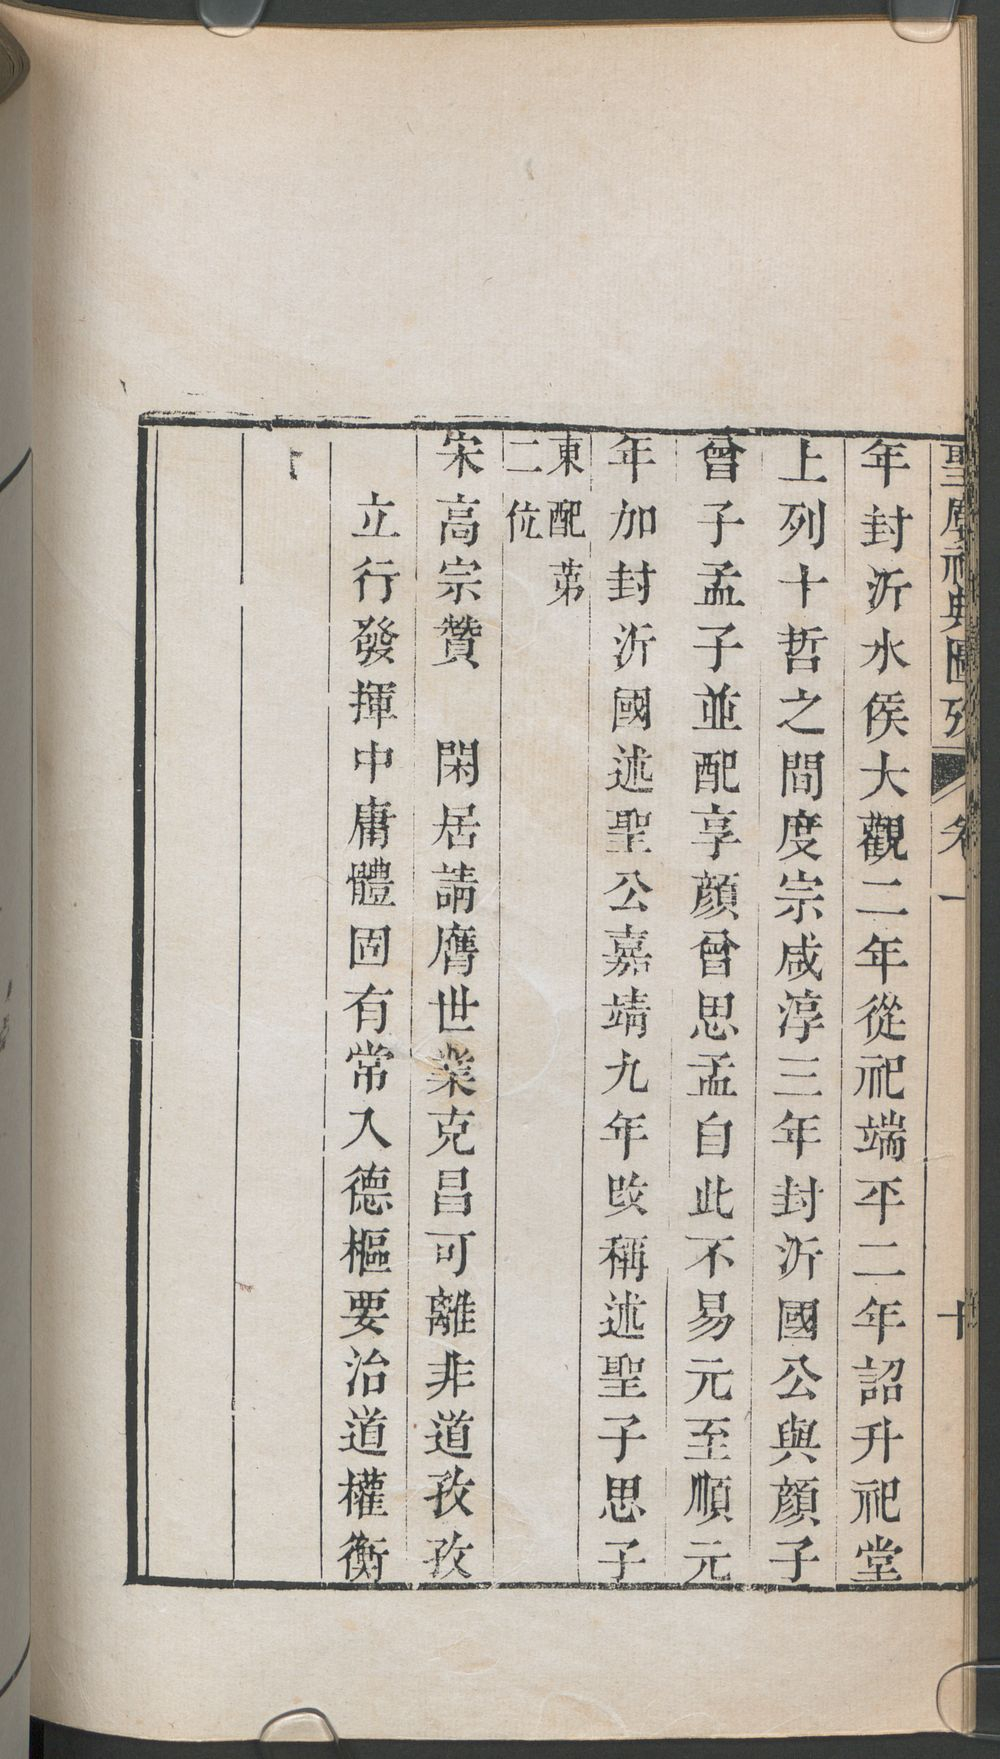 聖廟祀典圖攷 卷一 十
年封沂水侯大觀二年從祀端平二年詔升祀堂
上列十哲之間度宗咸淳三年封沂國公與顔子
曾子孟子並配享顔曾思孟自此不易元至順元
年加封沂國述聖公嘉靖九年改稱述聖子思子
東配第
二位
宋高宗贊　閑居請膺世業克昌可離非道孜孜
立行發揮中庸體固有常入德樞要治道權衡